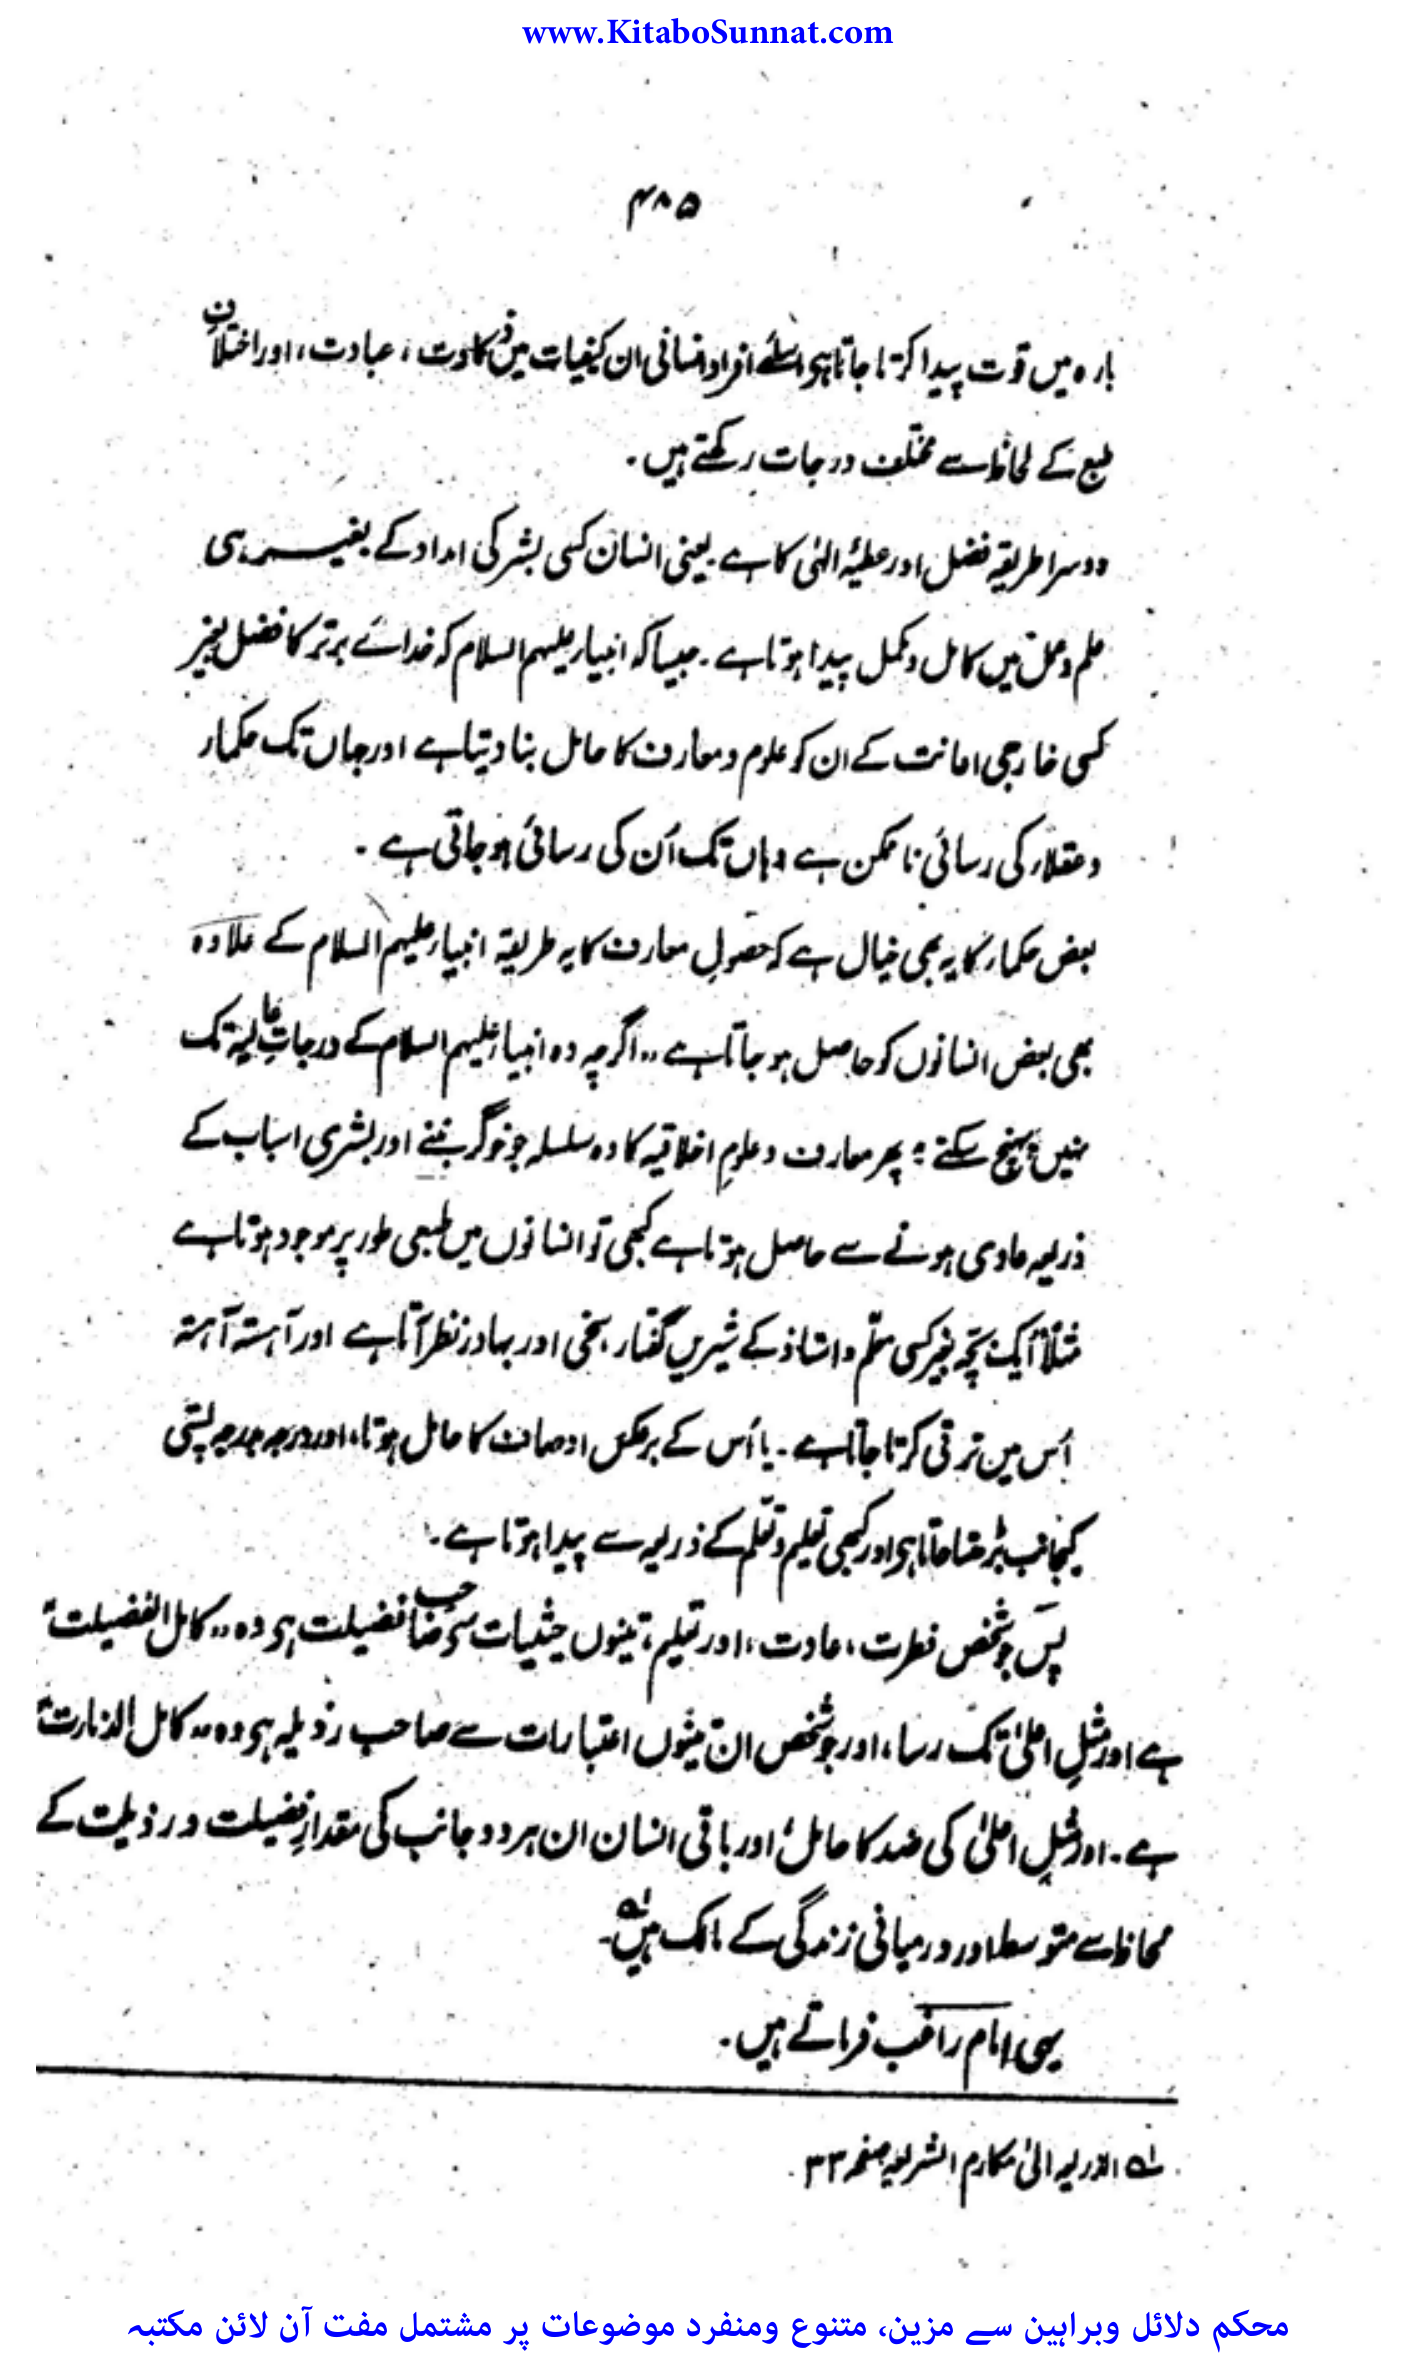 www.KitaboSunnat.com
۴۸۵
بارہ میں قوت پیدا کرتا جاتا ہو اسلئے افراد انسانی ان کیفیات میں ذکاوت، عبادت، اور اختلافِ
طبع کے لحاظ سے مختلف درجات رکھتے ہیں۔
دوسرا طریقہ فضل اور عطیۂ الٰہی کا ہے یعنی انسان کسی بشر کی امداد کے بغیر ہی
علم و عمل میں کامل و مکمل پیدا ہوتا ہے۔ جیسا کہ انبیاء علیہم السلام کہ خدائے برتر کا فضل بغیر
کسی خارجی اعانت کے ان کو علوم و معارف کا حامل بنا دیتا ہے اور جہاں تک حکماء
و عقلاء کی رسائی ناممکن ہے وہاں تک اُن کی رسائی ہو جاتی ہے۔
بعض حکماء کا یہ بھی خیال ہے کہ حصولِ معارف کا یہ طریقہ انبیاء علیہم السلام کے علاوہ
بھی بعض انسانوں کو حاصل ہو جاتا ہے "اگرچہ وہ انبیاء علیہم السلام کے درجاتِ عالیہ تک
نہیں پہنچ سکتے" پھر معارف و علومِ اخلاقیہ کا وہ سلسلہ جو خوگر بننے اور بشری اسباب کے
ذریعہ عادی ہونے سے حاصل ہوتا ہے کبھی تو انسانوں میں طبعی طور پر موجود ہوتا ہے
مثلاً ایک بچّہ بغیر کسی معلّم و استاذ کے شیریں گفتار، سخی اور بہادر نظر آتا ہے اور آہستہ آہستہ
اُس میں ترقی کرتا جاتا ہے۔ یا اُس کے برعکس اوصاف کا حامل ہوتا، اور درجہ بدرجہ پستی
کیجانب بڑھتا جاتا ہو اور کبھی تعلیم و تعلّم کے ذریعہ سے پیدا ہوتا ہے۔
پس جو شخص فطرت، عادت، اور تعلیم، تینوں حیثیات سے صاحبِ فضیلت ہو وہ "کامل الفضیلت"
ہے اور مثلِ اعلیٰ تک رسا، اور جو شخص ان تینوں اعتبارات سے صاحبِ رذیلہ ہو وہ "کامل الرذالت"
ہے۔ اور مثلِ اعلیٰ کی ضد کا حامل، اور باقی انسان ان ہر دو جانب کی مقدارِ فضیلت و رذیلت کے
لحاظ سے متوسط اور درمیانی زندگی کے مالک ہیں۔ ؂۱
یہی امام راغب فرماتے ہیں۔
؂۱ الذریعہ الیٰ مکارم الشریعہ صفحہ ۳۳۔
محکم دلائل وبراہین سے مزین، متنوع ومنفرد موضوعات پر مشتمل مفت آن لائن مکتبہ